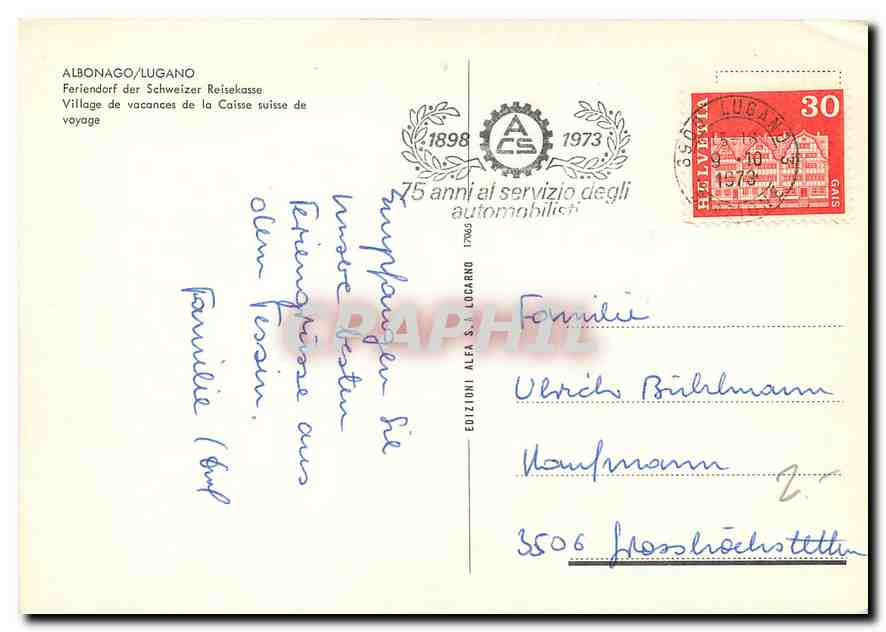 ALBONAGO/LUGANO
Feriendorf der Schweizer Reisekasse
Village de vacances de la Caisse suisse de
voyage
1898 ACS 1973
75 anni al servizio degli
automobilisti
LUGANO
9.10
1973
HELVETIA
30
GAIS
Empfangen Sie
unsere besten
Feriengrüsse aus
dem Tessin.
Familie
EDIZIONI ALFA S.A LOCARNO 17065
CPAPHIL
Familie
Ulrich Bühlmann
Kaufmann
3506 Grosshöchstetten
2.-